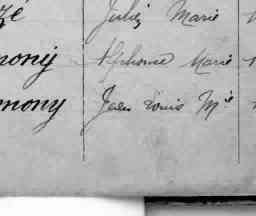 zé Julie Marie
mony Alphonse Marie
mony Jean Louis Mie